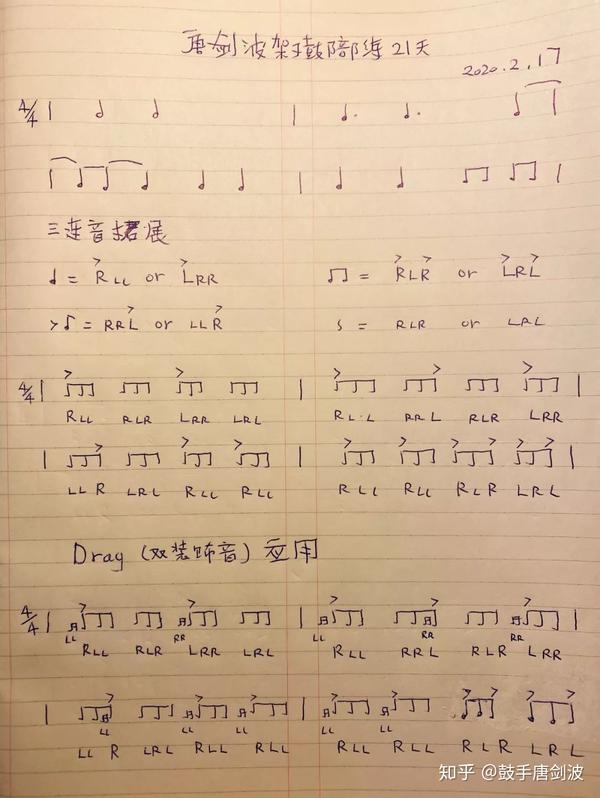 唐剑波架子鼓陪练21天
2020.2.17
4/4
三连音拓展
= RLL or LRR = RLR or LRL
= RRL or LLR = RLR or LRL
4/4
RLL RLR LRR LRL RLL RRL RLR LRR
LLR LRL RLL RLL RLL RLL RLR LRL
Drag (双装饰音) 应用
4/4
LL RR LL RR RR
RLL RLR LRR LRL RLL RRL RLR LRR
LL LL LL LL LL
LL R LRL RLL RLL RLL RLL RLR LRL
知乎 @鼓手唐剑波